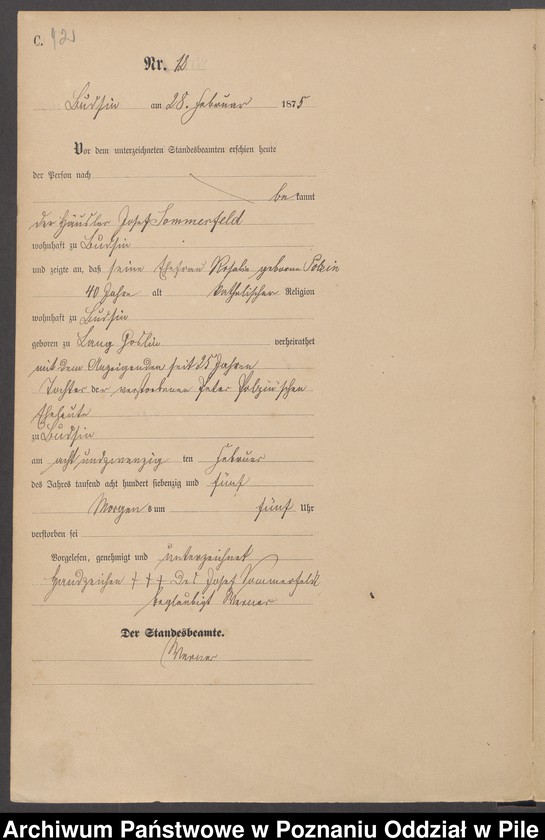 C.
Nr. 12
Budsin am 28. Februar 1875
Vor dem unterzeichneten Standesbeamten erschien heute
der Person nach
bekannt
der Häusler Josef Sommerfeld
wohnhaft zu Budsin
und zeigte an, daß seine Ehefrau Rosalie geborene Polzin
40 Jahre alt katholischer Religion
wohnhaft zu Budsin
geboren zu Lang Goslin verheirathet
mit dem Anzeigenden seit 25 Jahren
Tochter der verstorbenen Peter Polzin'schen
Eheleute
zu Budsin
am acht und zwanzig ten Februar
des Jahres tausend acht hundert siebenzig und fünf
Morgens um fünf Uhr
verstorben sei
Vorgelesen, genehmigt und unterzeichnet
Handzeichen + + + des Josef Sommerfeld
beglaubigt Werner
Der Standesbeamte.
Werner
Archiwum Państwowe w Poznaniu Oddział w Pile